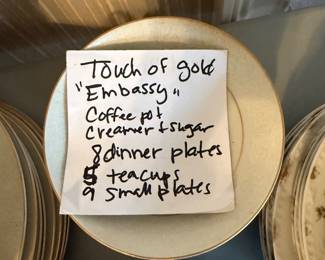 Touch of gold
"Embassy"
Coffee pot
Creamer & sugar
8 dinner plates
5 teacups
9 small plates